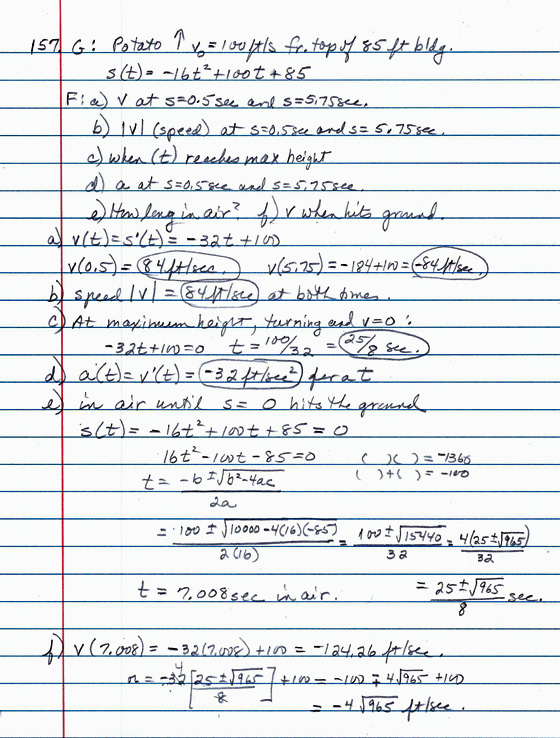 157. G: Potato ↑ v₀ = 100 ft/s fr. top of 85 ft bldg.
s(t) = -16t² + 100t + 85
F: a) v at s=0.5 sec and s=5.75 sec.
b) |v| (speed) at s=0.5 sec and s=5.75 sec.
c) when (t) reaches max height
d) a at s=0.5 sec and s=5.75 sec.
e) How long in air? f) v when hits ground.
a) v(t) = s'(t) = -32t + 100
v(0.5) = 84 ft/sec. v(5.75) = -184+100 = -84 ft/sec.
b) speed |v| = 84 ft/sec at both times.
c) At maximum height, turning and v=0:
-32t+100=0 t = 100/32 = 25/8 sec.
d) a(t) = v'(t) = -32 ft/sec² for a t
e) in air until s = 0 hits the ground
s(t) = -16t² + 100t + 85 = 0
16t² - 100t - 85 = 0 ( )( ) = -1360
( )+( ) = -100
t = (-b ± √(b²-4ac))/2a
= (100 ± √(10000 - 4(16)(-85)))/2(16) = (100 ± √15440)/32 = 4(25 ± √965)/32
t = 7.008 sec in air. = (25 ± √965)/8 sec.
f) v(7.008) = -32(7.008) + 100 = -124.26 ft/sec.
4
= -32[(25 ± √965)/8] + 100 = -100 ∓ 4√965 + 100
= -4√965 ft/sec.